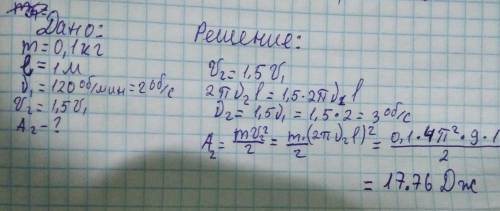 Дано:
m=0,1кг
l=1м
ν₁=120об/мин=2об/с
V₂=1,5V₁
A₂-?
Решение:
V₂=1,5V₁
2πν₂l=1,5·2πν₁l
ν₂=1,5ν₁=1,5·2=3об/с
A₂=mV₂²/2=m·(2πν₂l)²/2=0,1·4π²·9·1/2
=17.76 Дж